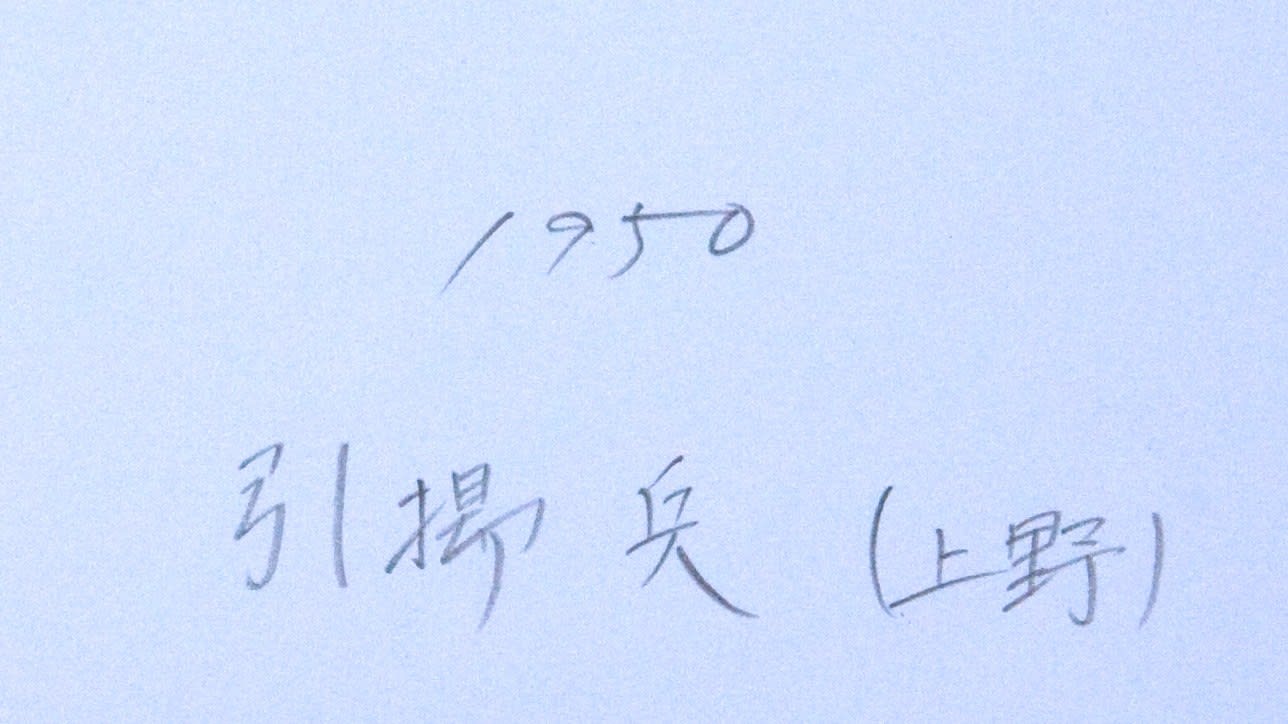 1950
引揚兵(上野)